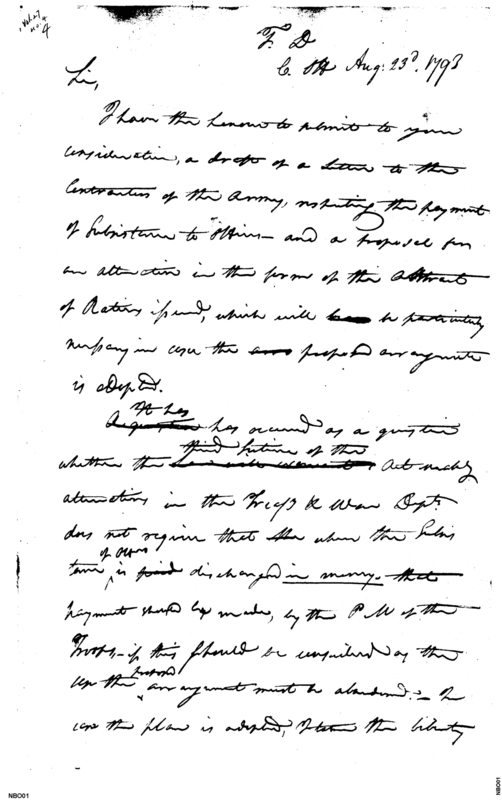 T. D
C. Off Aug: 23d. 1793
Sir,
I have the honour to submit to your
consideration, a draft of a letter to the
Contractors of the Army, respecting the payment
of Subsistence to Officers — and a proposal for
an alteration in the form of the Abstract
of Rations issued, which will be particularly
necessary in case the proposed arrangement
is adopted.
It has
has occurred as a question
third Section of the
whether the Act making
alterations in the Treasy & War Depts.
does not require that when the Subsis
of Officers
tence is discharged in money. that
payment should be made, by the P M of the
Troops — if this should be considered as the
proposed
case the arrangement must be abandoned. — In
case the plan is adopted, I take the liberty
NBO01
NBO01